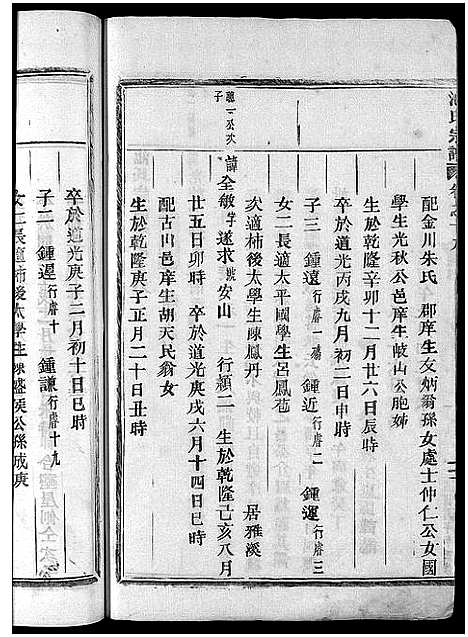 氏宗譜
配金川朱氏 郡庠生文炳翁孫女處士仲仁公女國
學生光秋公邑庠生岐山公胞姊
生於乾隆辛卯十二月廿六日辰時
卒於道光丙戌九月初二日申時
子三 鍾遠行膺一 鍾近行膺二 鍾運行膺三
女二長適太平國學生呂鳳苞
次適柿後太學生陳鳳丹 居雅溪
聽一公次子
諱全敏字遜求號安山 行額二 生於乾隆己亥八月
廿五日卯時 卒於道光庚戌六月十四日巳時
配古山邑庠生胡天民翁女
生於乾隆庚子正月二十日丑時
卒於道光庚子二月初十日巳時
子二 鍾遲行膺十 鍾謙行膺十九
女一長適柿後太學生陳盛侯公孫成庚